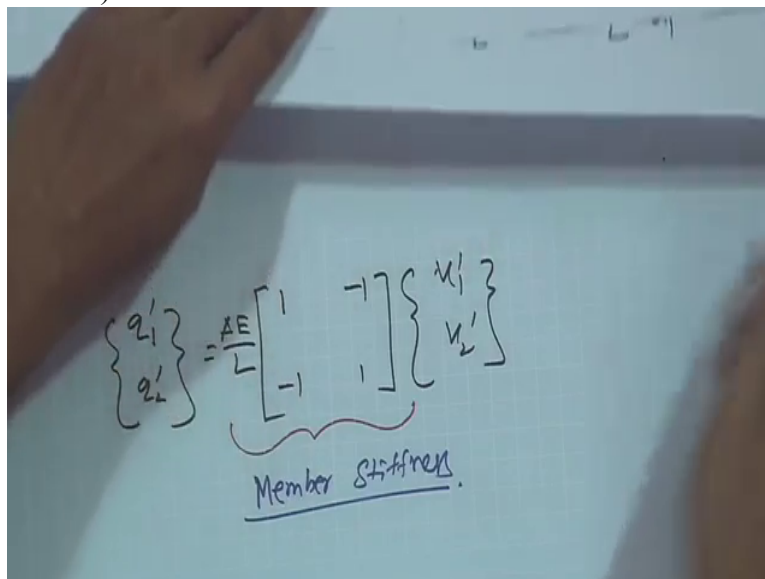 {q₁' q₂'} = AE/L [1 -1 -1 1] {u₁' u₂'}
Member Stiffness.